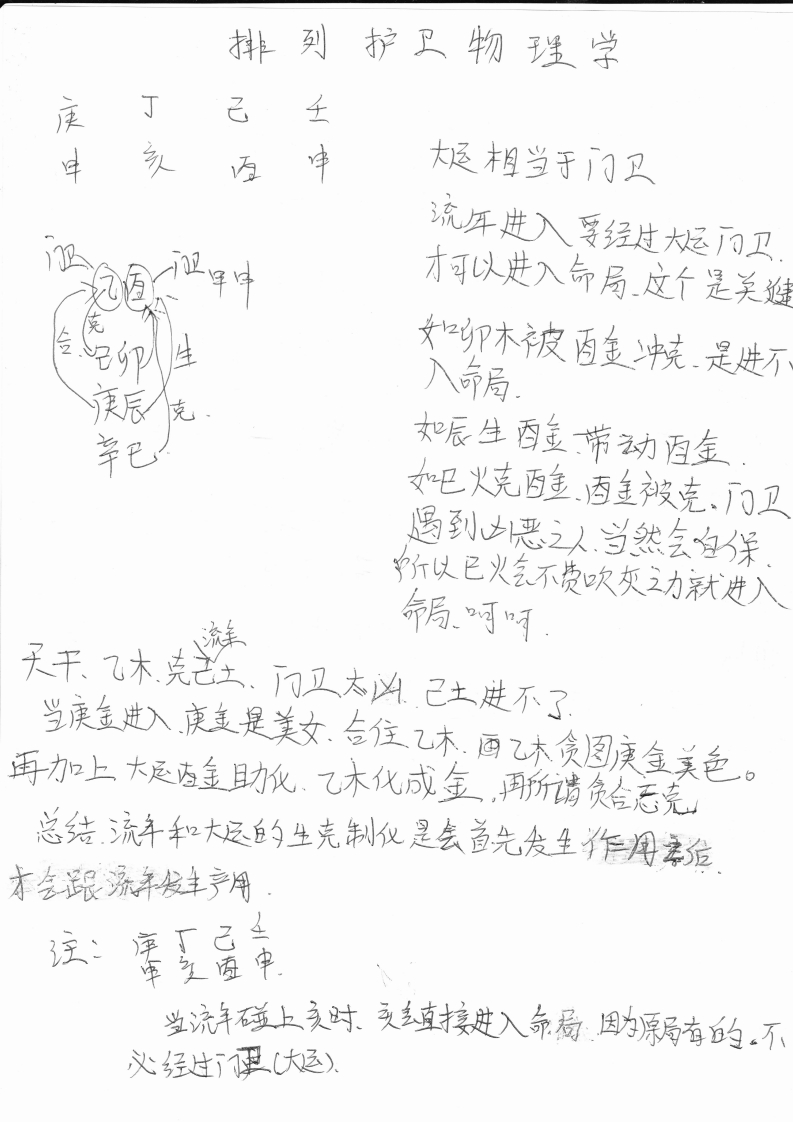 排列护卫物理学
庚 丁 己 壬
申 亥 酉 申
大运相当于门卫
流年进入要经过大运门卫.
才可以进入命局、这个是关键
如卯木被酉金冲克、是进不
入命局.
如辰生酉金、带动酉金.
如巳火克酉金、酉金被克。门卫
遇到凶恶之人、当然会自保.
所以巳火会不费吹灰之力就进入
命局、呵呵.
门卫 乙酉 门卫 甲申
合 克 己卯 生
庚辰 克.
辛巳
流年
天干、乙木、克己土、门卫太凶、己土进不了.
当庚金进入、庚金是美女、合住乙木、因乙木贪图庚金美色。
再加上大运酉金助化、乙木化成金,再所谓贪合忘克
总结、流年和大运的生克制化是会首先发生作用 后
才会跟流年发生产用.
注: 庚 丁 己 壬
申 亥 酉 申.
当流年碰上亥时、亥会直接进入命局、因为原局有的。不
必经过门卫(大运).